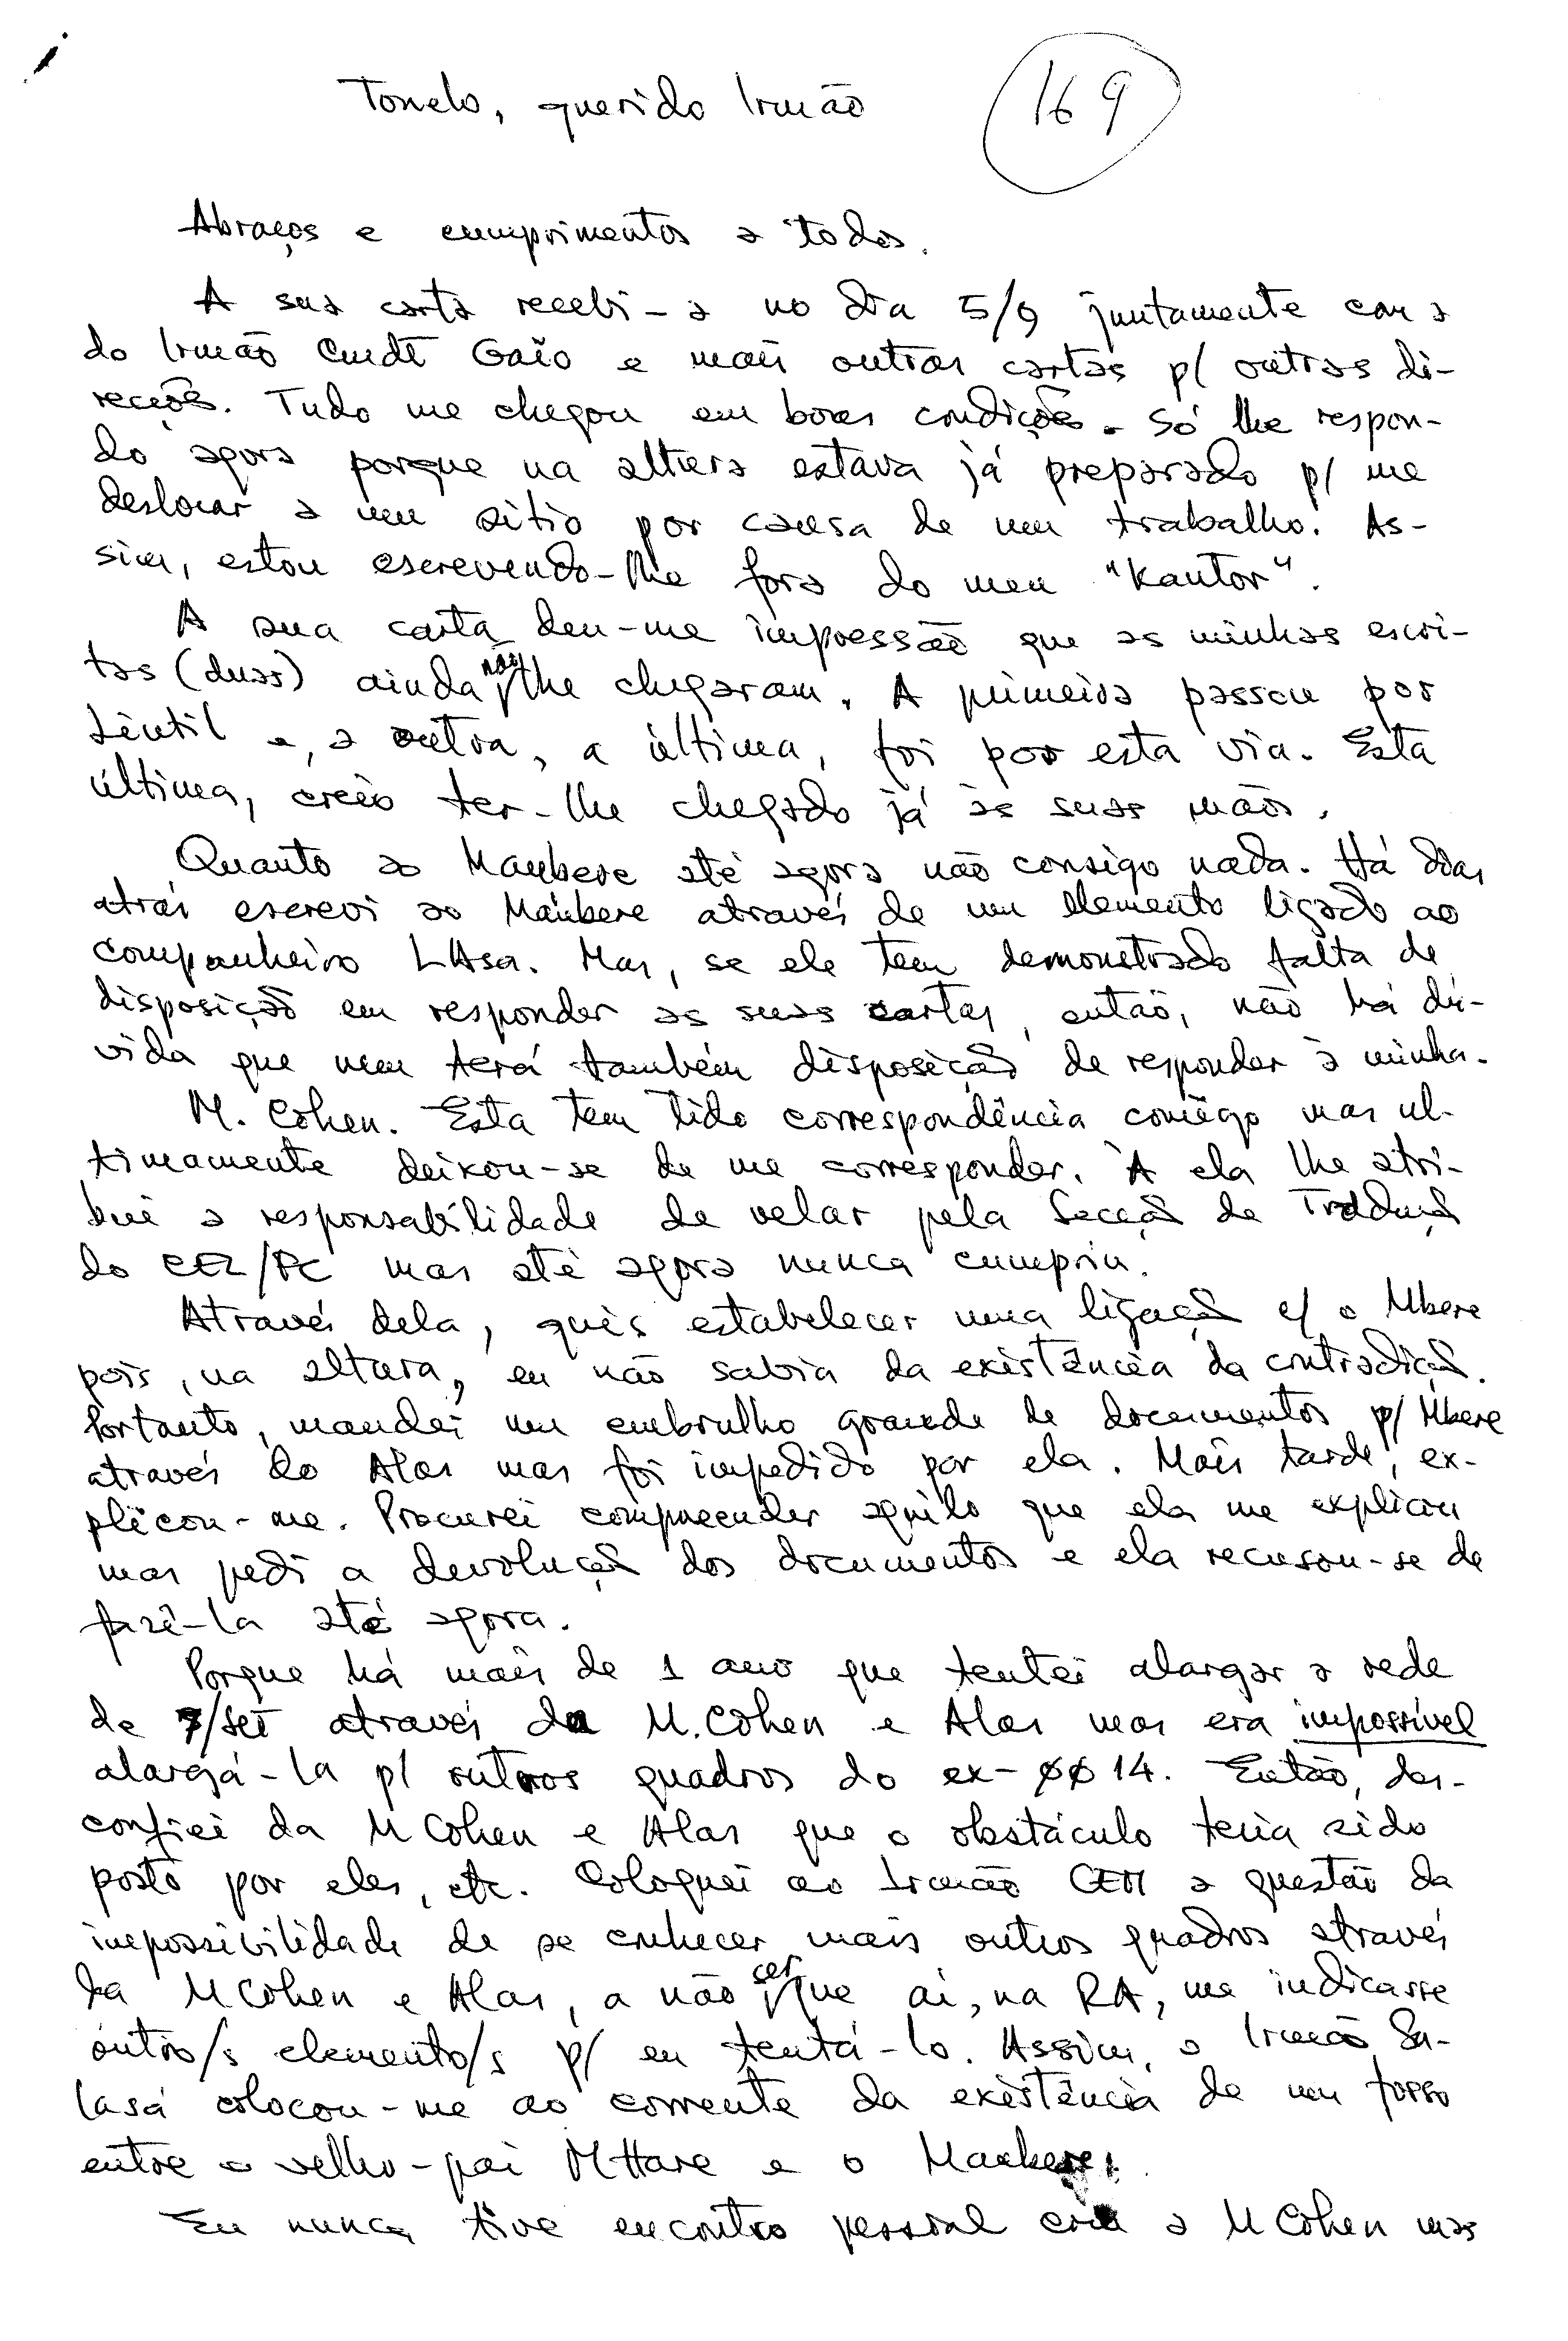 Tonelo, querido Irmão
169
Abraços e cumprimentos a todos.
A sua carta recebi-a no dia 5/9 juntamente com a
do Irmão Cmdt Gaio e mais outras cartas p/ outras di-
recções. Tudo me chegou em boas condições. Só lhe respon-
do agora porque na altura estava já preparado p/ me
deslocar a um sítio por causa de um trabalho. As-
sim, estou escrevendo-lhe fora do meu "Kantor".
A sua carta deu-me impressão que as minhas escri-
tas (duas) ainda não lhe chegaram. A primeira passou por
Lêntil e, a outra, a última, foi por esta via. Esta
última, creio ter-lhe chegado já às suas mãos.
Quanto ao Maubere até agora não consigo nada. Há dias
atrás escrevi ao Maubere através de um elemento ligado ao
companheiro LAsa. Mas, se ele tem demonstrado falta de
disposição em responder as suas cartas, então, não há dú-
vida que nem terá também disposição de responder à minha.
M. Cohen. Esta tem tido correspondência comigo mas ul-
timamente deixou-se de me corresponder. À ela lhe atri-
bui a responsabilidade de velar pela Secção de Tradução
do CEL/FC mas até agora nunca cumpriu.
Através dela, quis estabelecer uma ligação c/ o Mbere
pois, na altura, eu não sabia da existência da contradição.
Portanto, mandei um embrulho grande de documentos p/ Mbere
através do Alas mas foi impedido por ela. Mais tarde, ex-
plicou-me. Procurei compreender aquilo que ela me explicou
mas pedi a devolução dos documentos e ela recusou-se de
fazê-la até agora.
Porque há mais de 1 ano que tentei alargar a rede
de 7/Set através da M. Cohen e Alas mas era impossível
alargá-la p/ outros quadros do ex-øø14. Então, des-
confiei da M Cohen e Alas que o obstáculo teria sido
posto por eles, etc. Coloquei ao Irmão CEM a questão da
impossibilidade de se conhecer mais outros quadros através
da M Cohen e Alas, a não ser que aí, na RA, me indicasse
outro/s elemento/s p/ eu tentá-lo. Assim, o Irmão Sa-
lasa colocou-me ao corrente da existência de um fosso
entre o velho-pai MHare e o Maubere.
Eu nunca tive encontro pessoal com a M Cohen mas